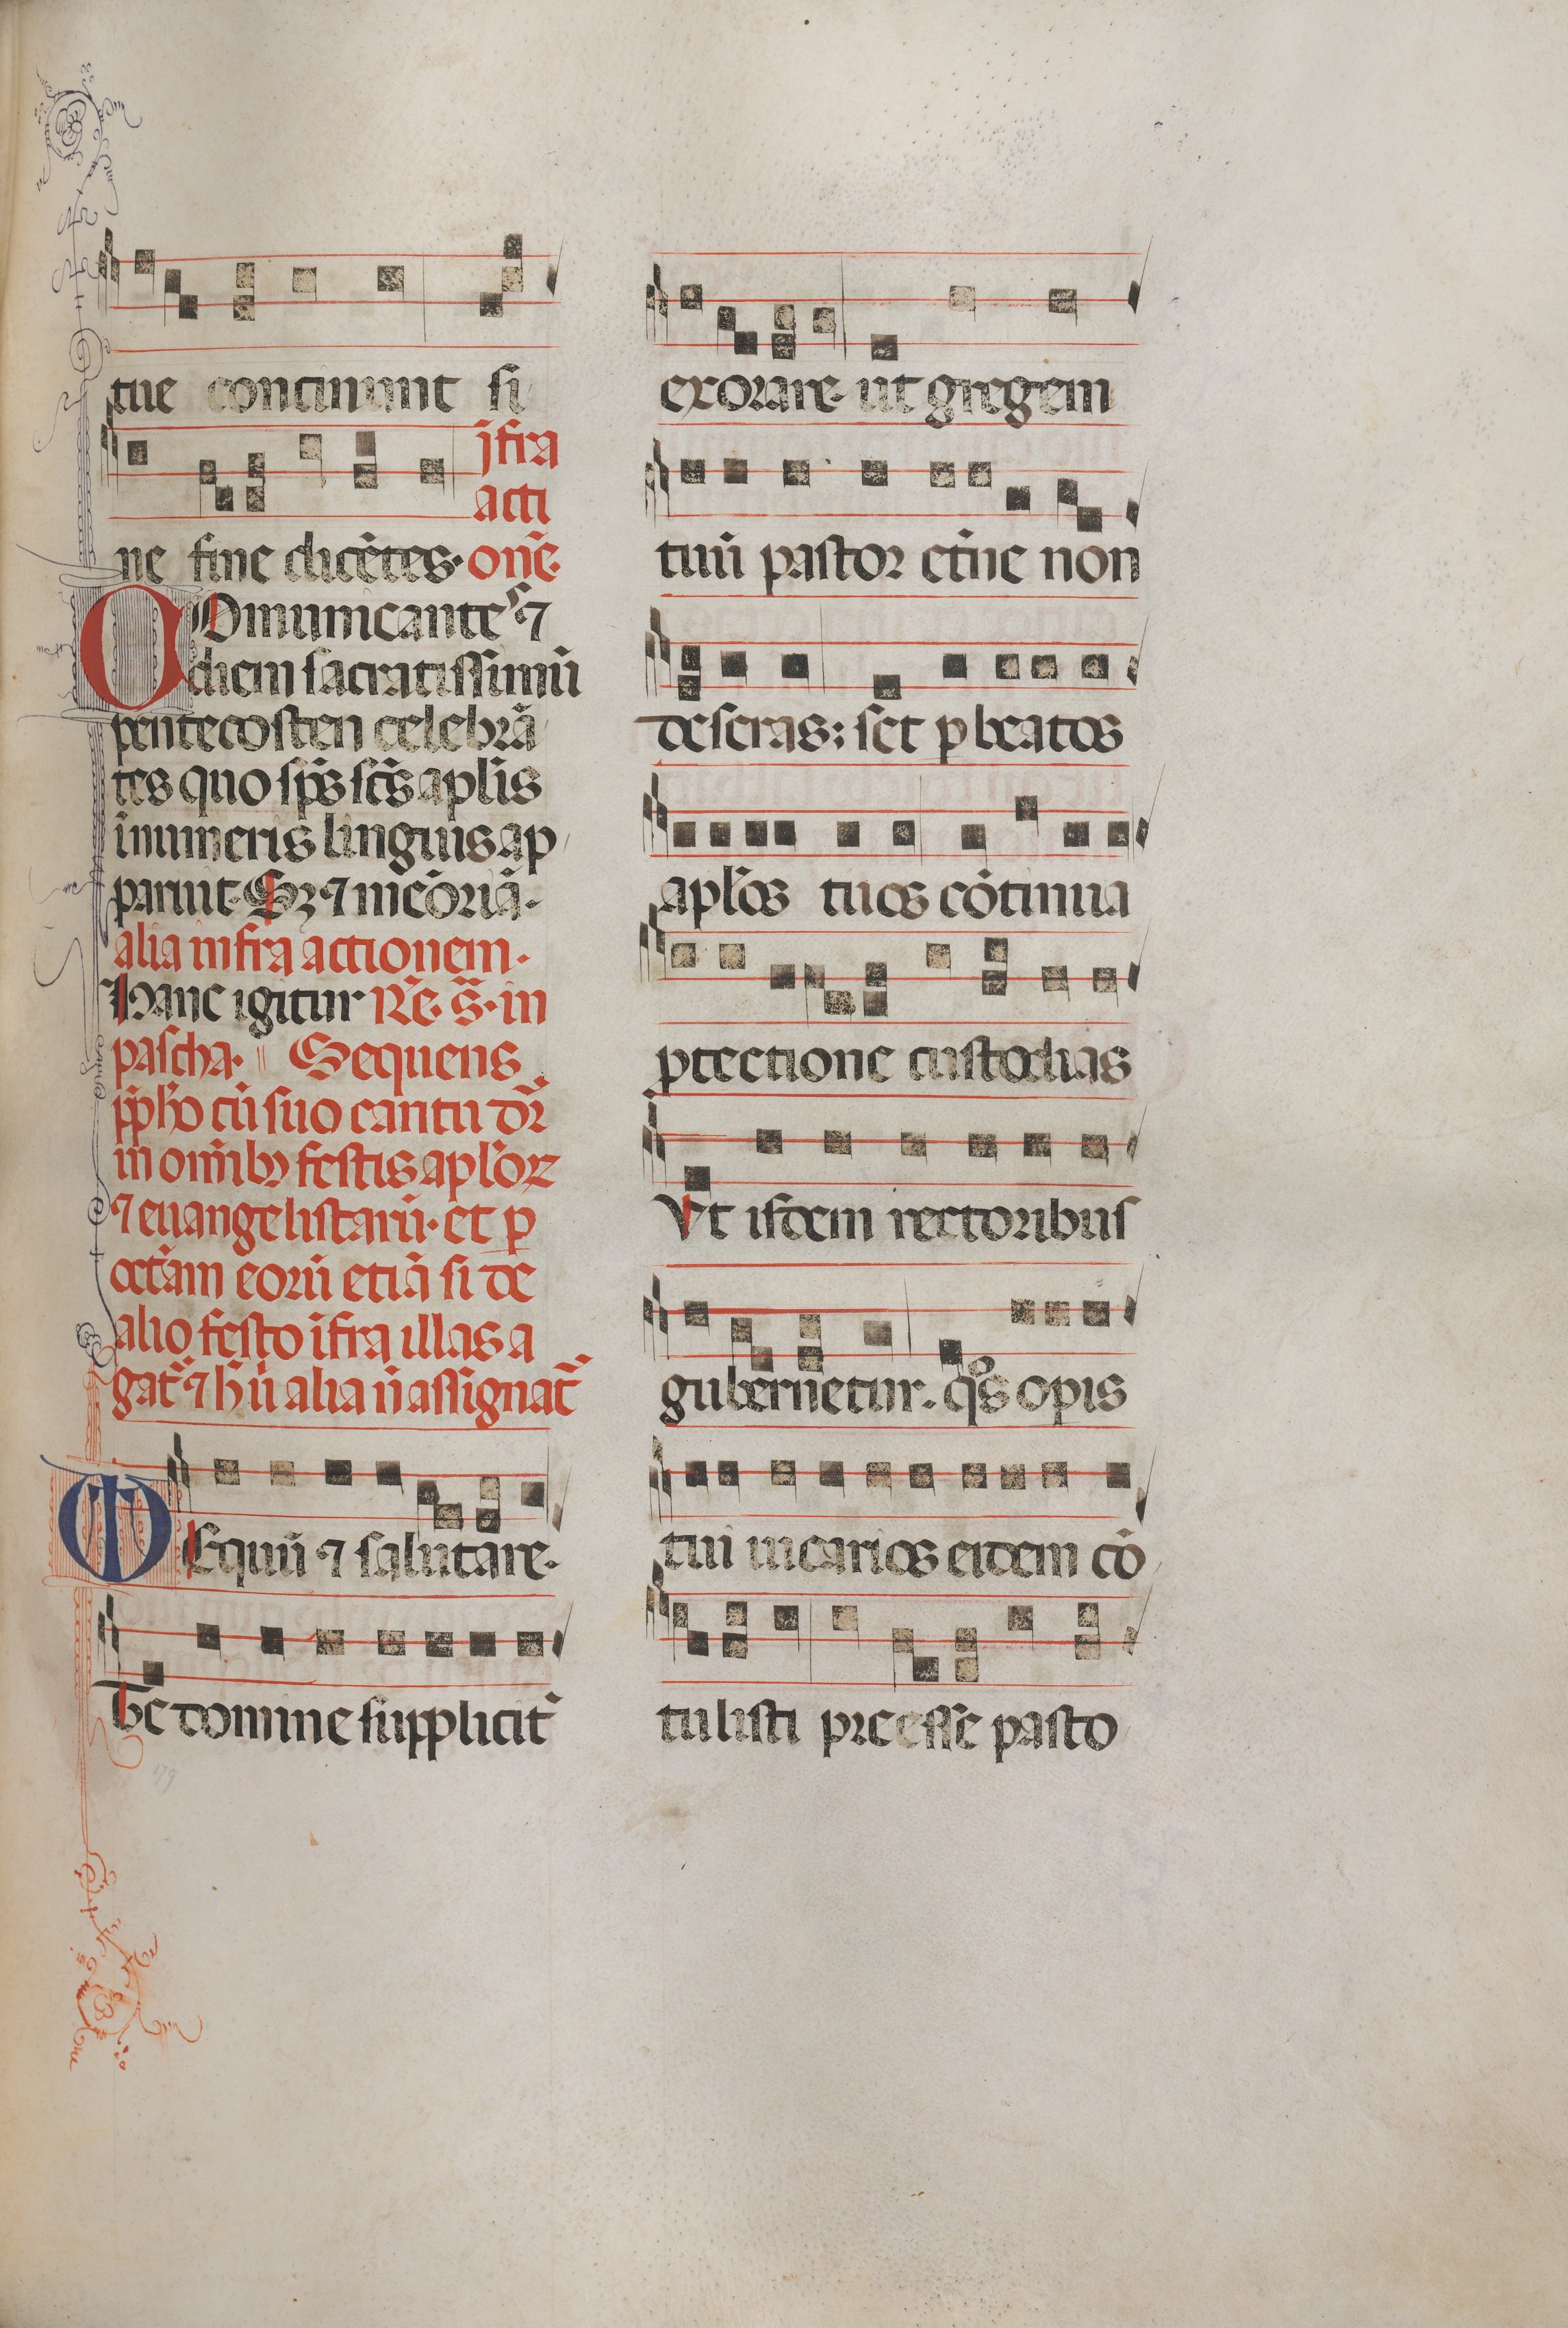 tue continunt si
ĩfra
acti
ne fine dicẽtes. onẽ.
COmunicantes ⁊
diem sacratissimũ
pentecosten celebrã
tes quo sp̃s sc̃s apl̃is
ĩnumeris linguis ap
paruit. Sz ⁊ meõriã.
alia infra actionem.
Hanc igitur Re. s̃. in
pascha. Sequens
p̃pho cũ suo cantu dr̃
in om̃ibꝫ festis apl̃oꝝ
⁊ euangelistarũ. et ꝑ
octãm eorũ etiã si de
alio festo ĩfra illas a
gat᷑ ⁊ hñ alia ñ assignat᷑
Equũ ⁊ salutare.
te domine suppliciter᷑
exorare. ut gregem
tuũ pastor et̃ne non
deseras; set ꝑ beatos
apl̃os tuos cõtinua
ꝓtectione custodias
Vt isdem rectoribus
gubernetur. q̃s opis
tui uicarios eidem cõ
tulisti preesse pasto